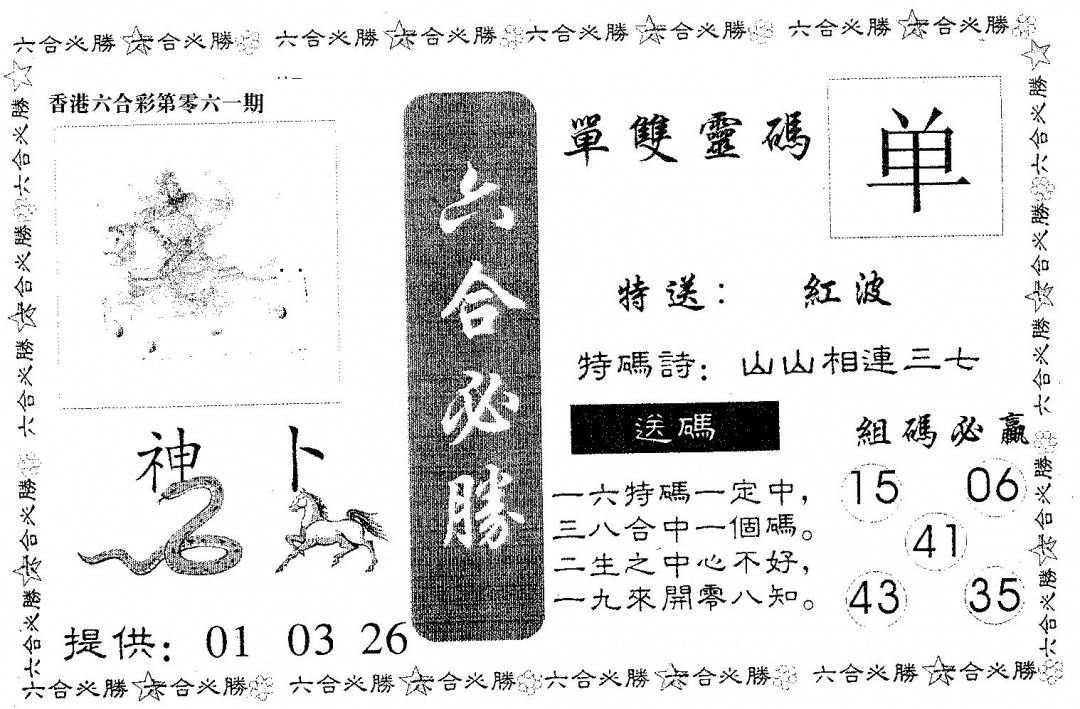 六合必勝☆六合必勝 六合必勝☆六合必勝 六合必勝☆六合必勝 六合必勝☆六合必勝
香港六合彩第零六一期
神 卜
提供：01 03 26
六合必勝
單雙靈碼
单
特送：紅波
特碼詩：山山相連三七
送碼
一六特碼一定中，
三八合中一個碼。
二生之中心不好，
一九來開零八知。
組碼必贏
15 06
41
43 35
六合必勝☆六合必勝☆六合必勝☆六合必勝
六合必勝☆六合必勝☆六合必勝☆六合必勝
六合必勝☆六合必勝 六合必勝☆六合必勝 六合必勝☆六合必勝 六合必勝☆六合必勝